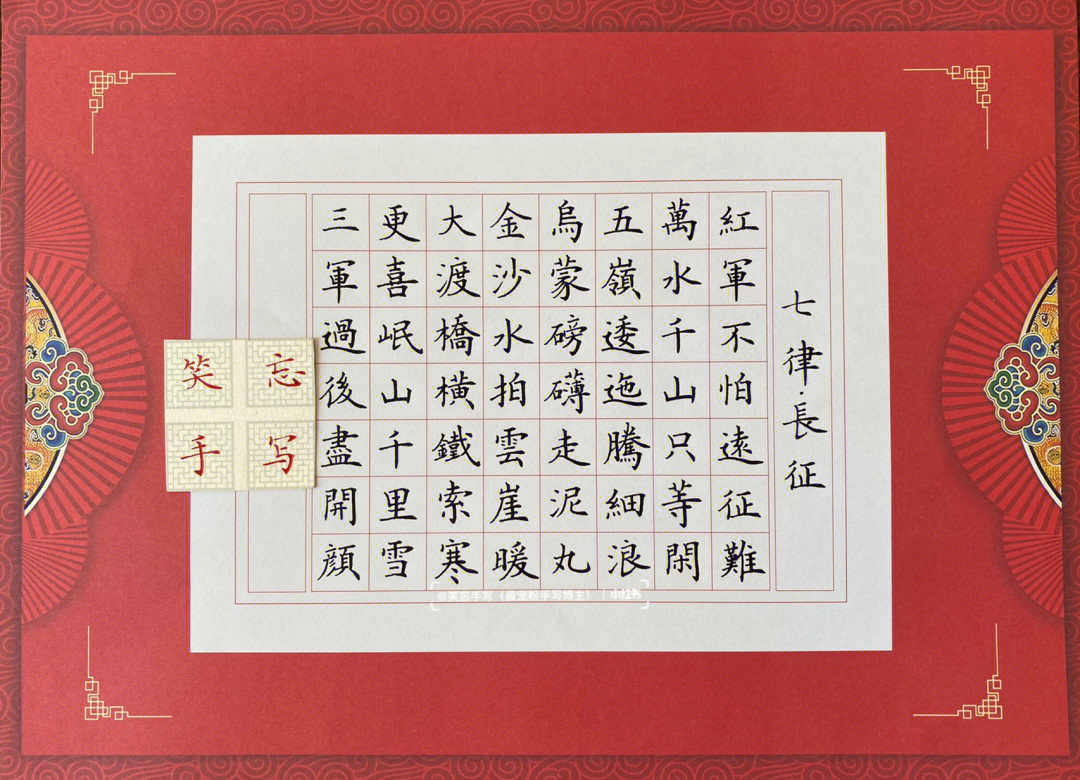 七律·長征
紅軍不怕遠征難
萬水千山只等閑
五嶺逶迤騰細浪
烏蒙磅礴走泥丸
金沙水拍雲崖暖
大渡橋橫鐵索寒
更喜岷山千里雪
三軍過後盡開顏
笑忘
手写
@笑忘手写（最宠粉手写博主） 小红书